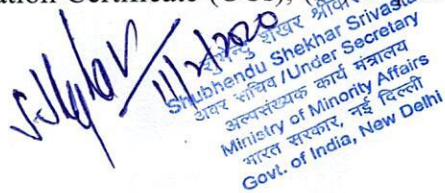 ation Certificate (UCs), (
11/2/2020
Shubhendu Shekhar Srivasta
अवर सचिव /Under Secretary
अल्पसंख्यक कार्य मंत्रालय
Ministry of Minority Affairs
भारत सरकार, नई दिल्ली
Govt. of India, New Delhi